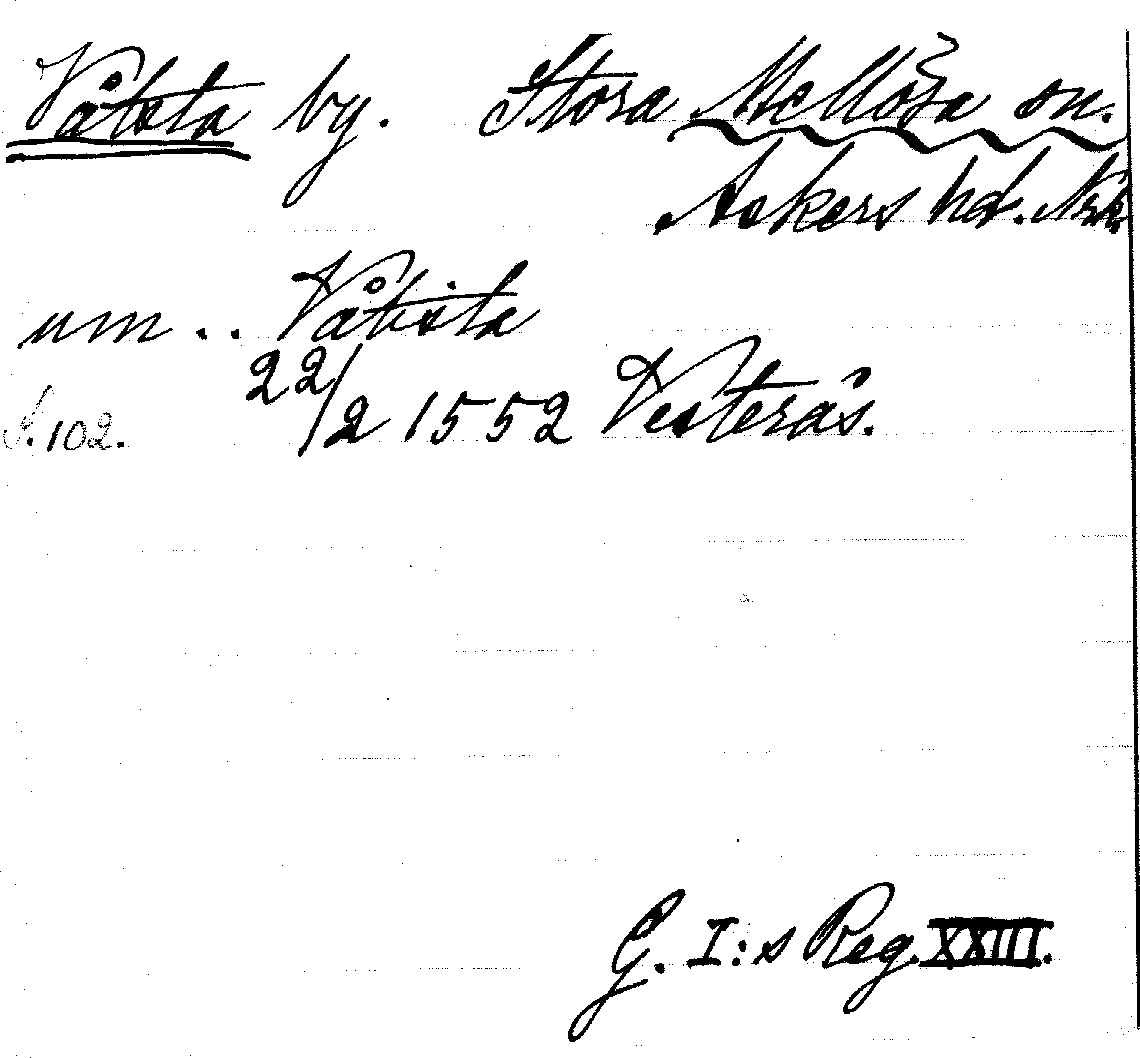 Våtsta by. Stora Mellösa sn.
Askers hd. Nrk.
um .. Våtista
S. 102. 22/2 1552 Vesterås.
G. I:s Reg. XXIII.